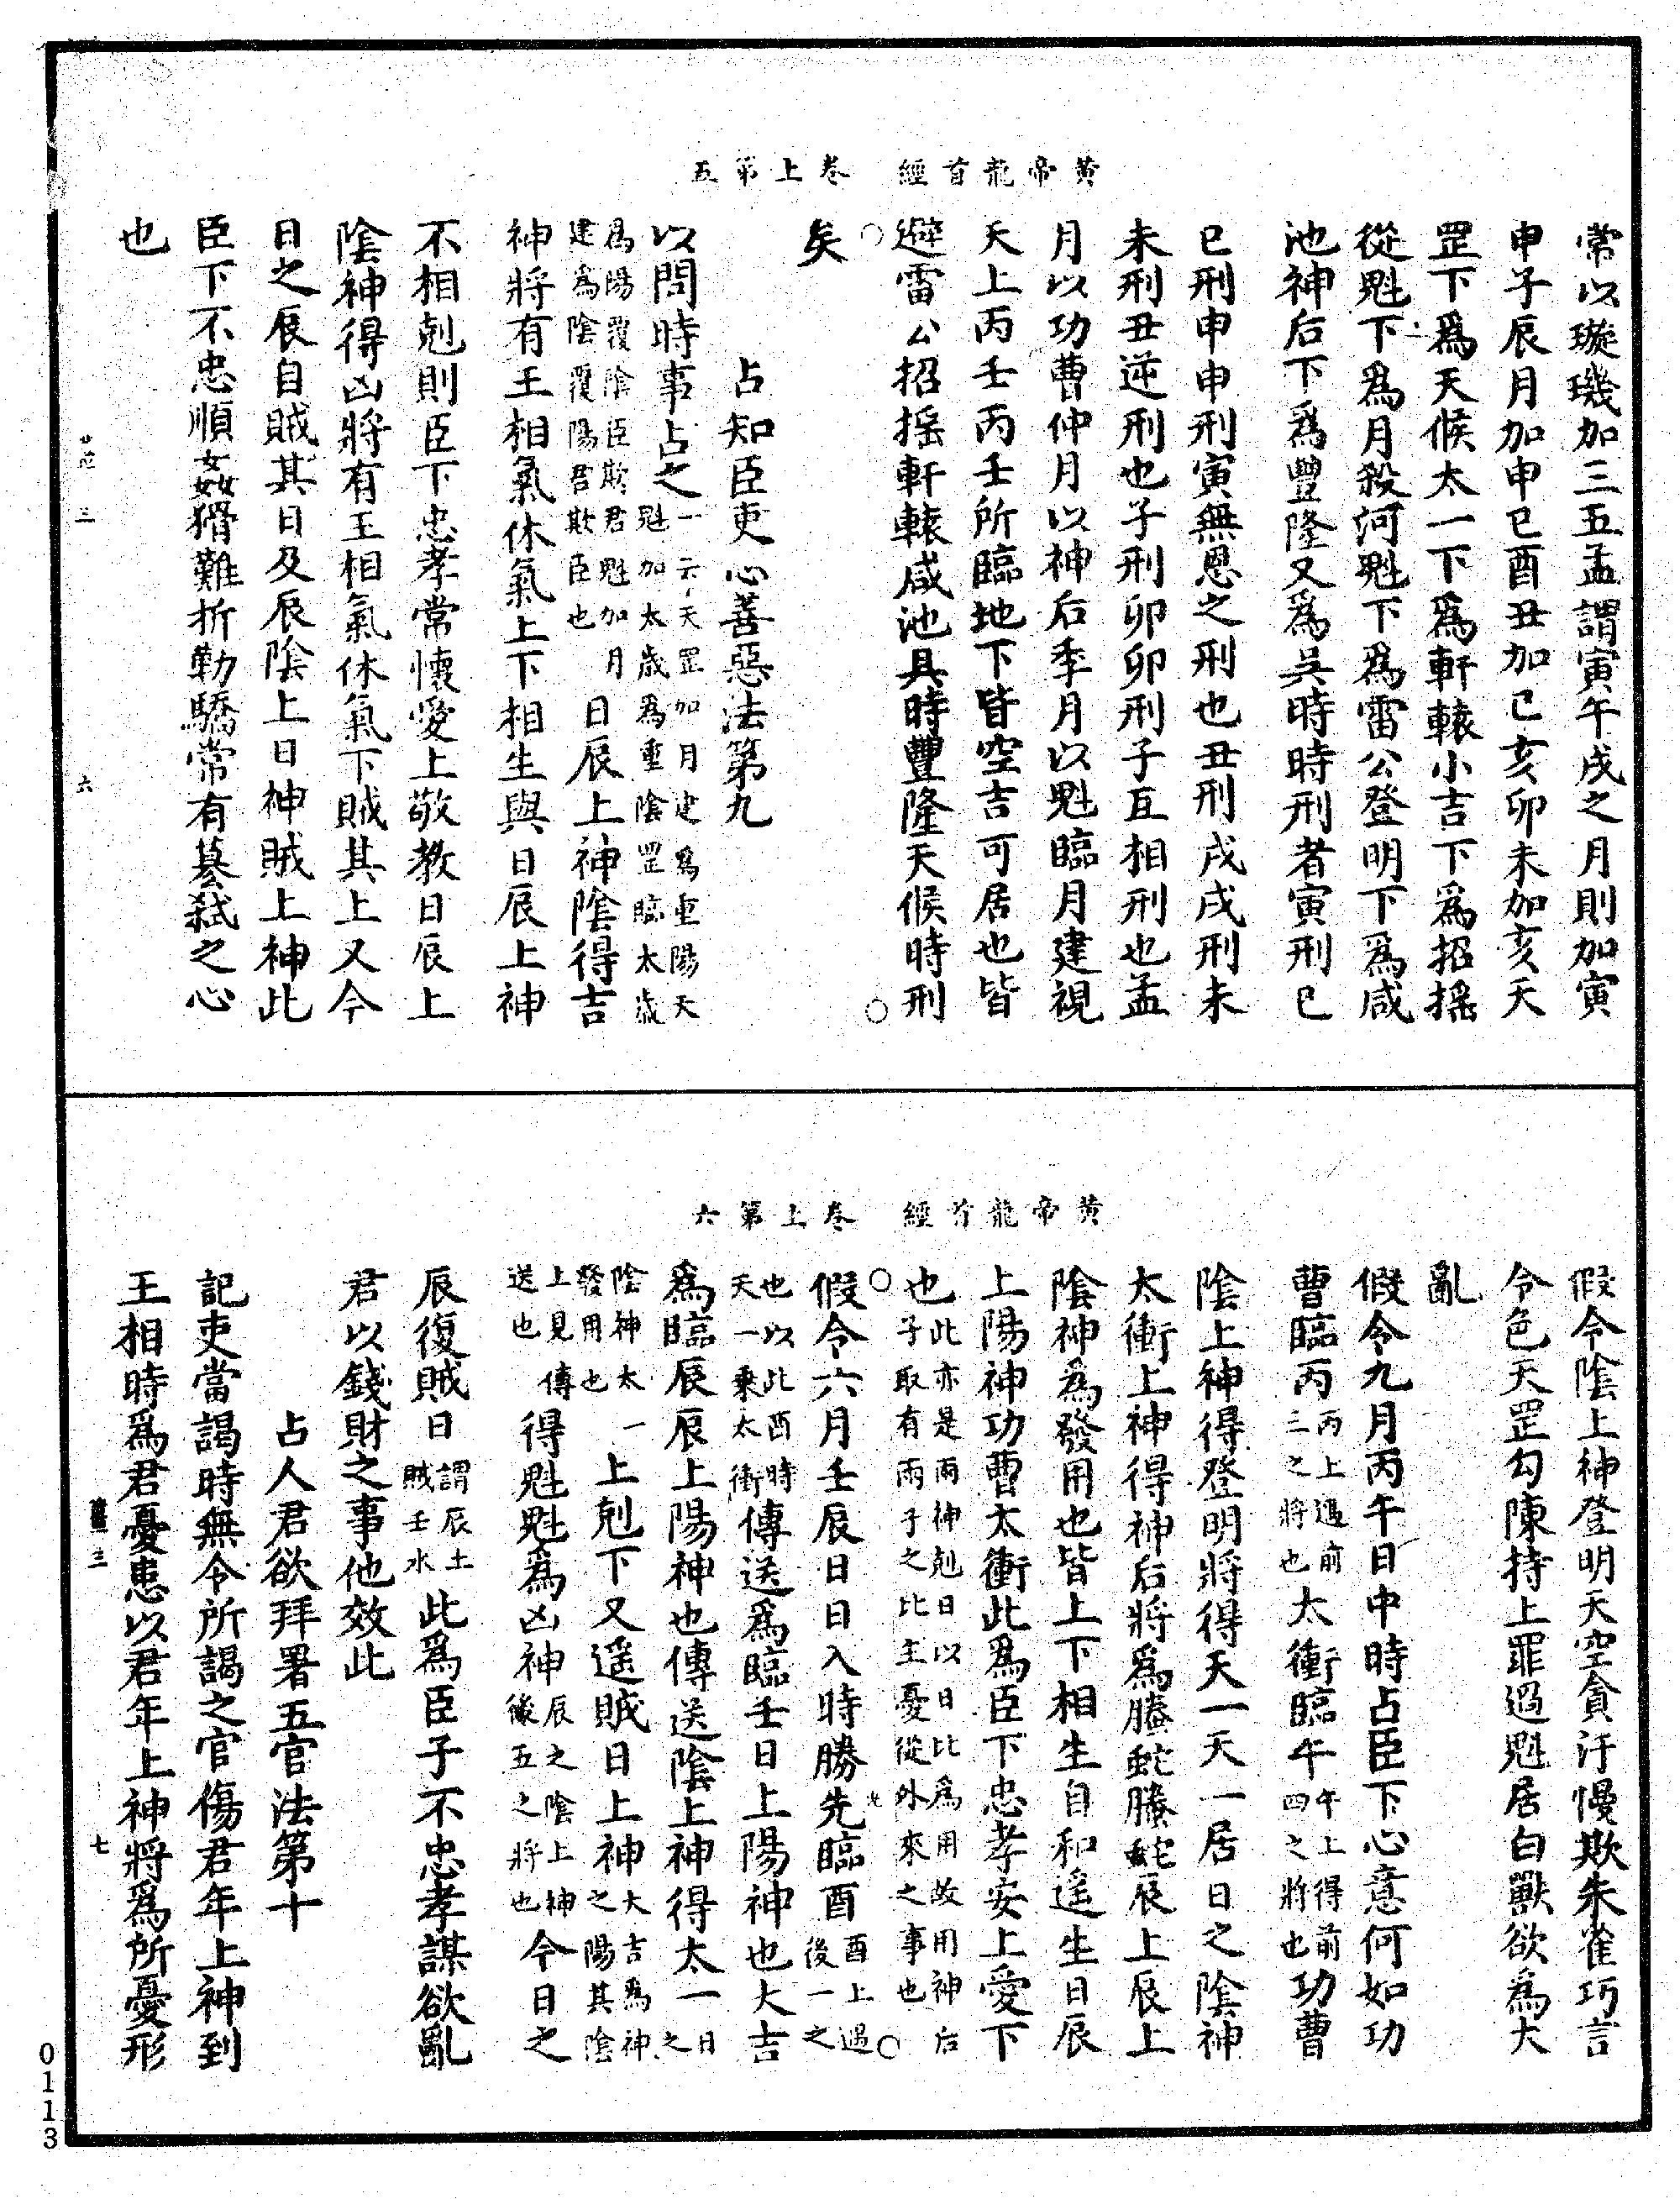 黃帝龍首經　卷上第五
常以璇璣加三五孟謂寅午戌之月則加寅
申子辰月加申巳酉丑加巳亥卯未加亥天
罡下爲天候太一下爲軒轅小吉下爲招搖
從魁下爲月殺河魁下爲雷公登明下爲咸
池神后下爲豐隆又爲吳時時刑者寅刑巳
巳刑申申刑寅無恩之刑也丑刑戌戌刑未
未刑丑逆刑也子刑卯卯刑子互相刑也孟
月以功曹仲月以神后季月以魁臨月建視
天上丙壬丙壬所臨地下皆空吉可居也皆
避雷公招搖軒轅咸池具時豐隆天候時刑
矣
占知臣吏心善惡法第九
以問時事占之一云天罡加月建爲重陽天
魁加太歲爲重陰罡臨太歲
爲陽覆陰臣欺君魁加月
建爲陰覆陽君欺臣也日辰上神陰得吉
神將有王相氣休氣上下相生與日辰上神
不相剋則臣下忠孝常懷愛上敬教日辰上
陰神得凶將有王相氣休氣下賊其上又今
日之辰自賊其日及辰陰上日神賊上神此
臣下不忠順姦猾難折勒驕常有篡弒之心
也
三
六
黃帝龍首經　卷上第六
假令陰上神登明天空貪汙慢欺朱雀巧言
令色天罡勾陳持上罪過魁居白獸欲爲大
亂
假令九月丙午日中時占臣下心意何如功
曹臨丙丙上遇前
三之將也太衝臨午午上得前
四之將也功曹
陰上神得登明將得天一天一居日之陰神
太衝上神得神后將爲騰蛇騰蛇辰上辰上
陰神爲發用也皆上下相生自和遙生日辰
上陽神功曹太衝此爲臣下忠孝安上愛下
也此亦是兩神剋日以日比爲用故用神后
子取有兩子之比主憂從外來之事也
假令六月壬辰日日入時勝先臨酉酉上遇
後一之
也以此酉時
天一乘太衝傳送爲臨壬日上陽神也大吉
爲臨辰辰上陽神也傳送陰上神得太一日
之
陰神太一
發用也上剋下又遥賊日上神大吉爲神
之陽其陰
上見傳
送也得魁魁爲凶神辰之陰上神
後五之將也今日之
辰復賊日謂辰土
賊壬水此爲臣子不忠孝謀欲亂
君以錢財之事他效此
占人君欲拜署五官法第十
記吏當謁時無令所謁之官傷君年上神到
王相時爲君憂患以君年上神將爲所憂形
三
七
0113